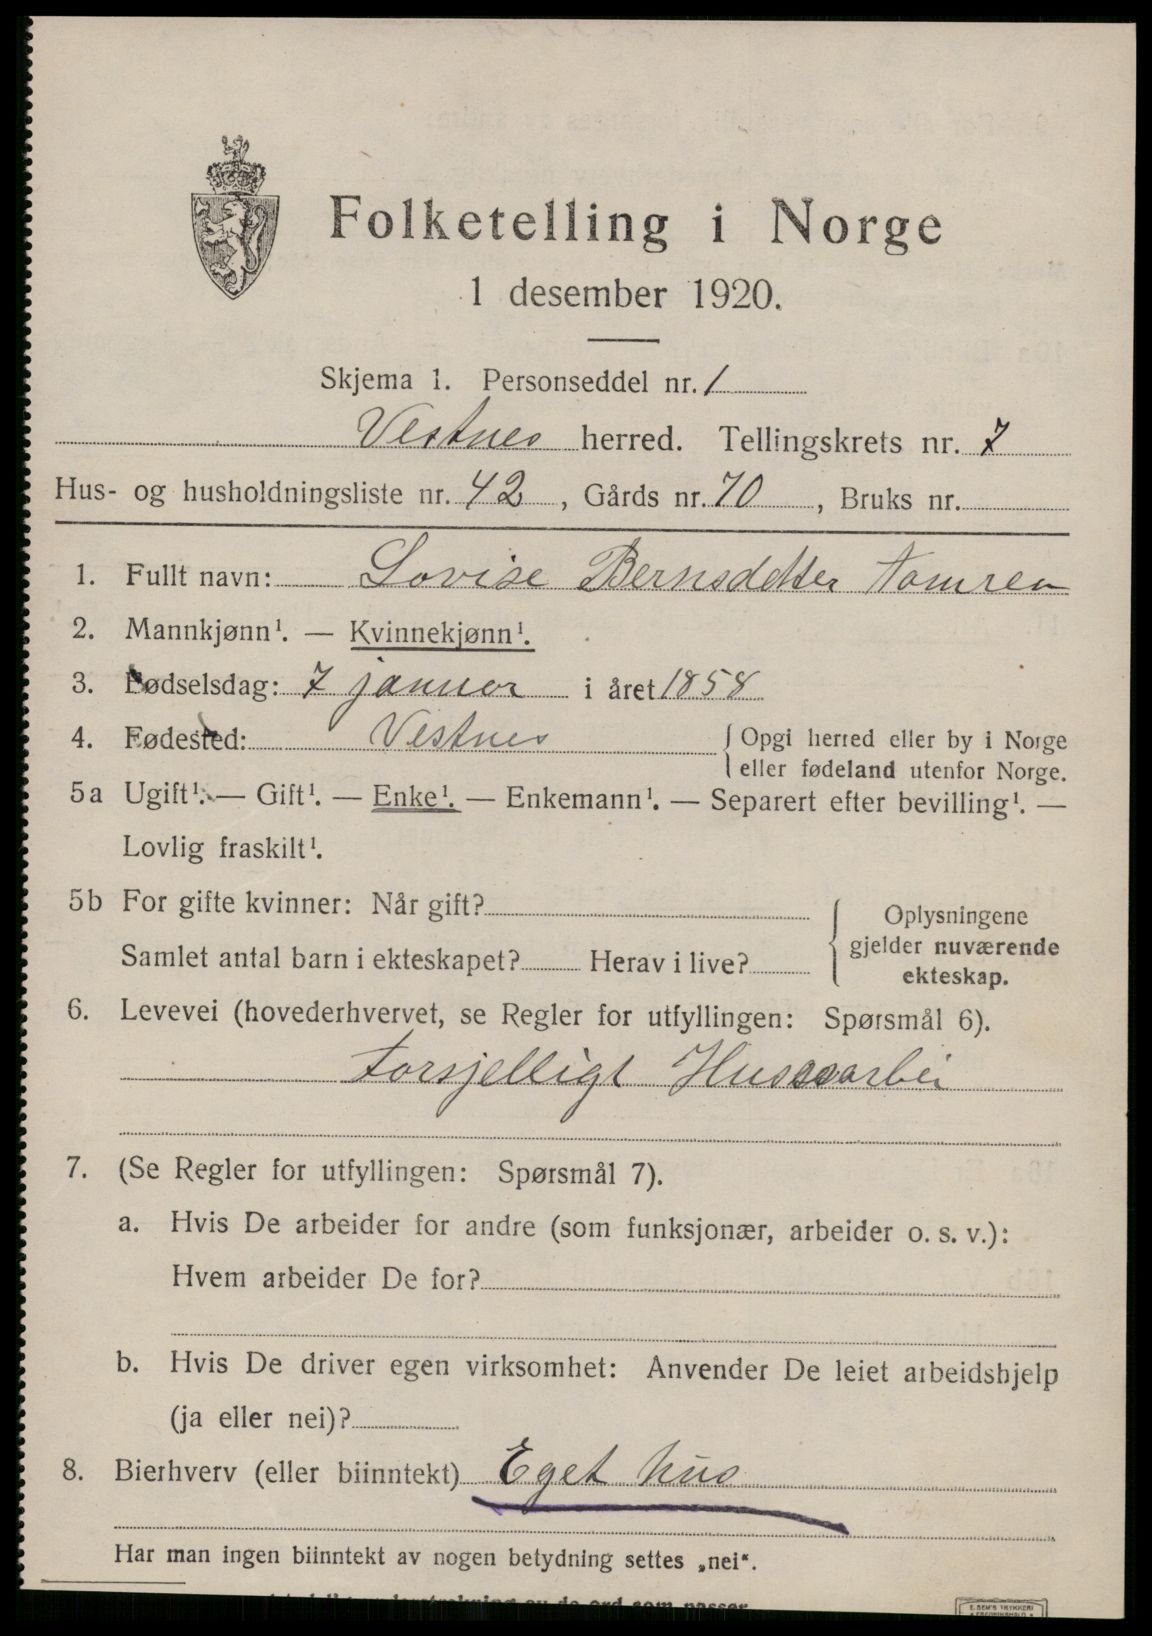 Folketelling i Norge
1 desember 1920.
Skjema 1. Personseddel nr. 1
Vestnes herred. Tellingskrets nr. 7
Hus- og husholdningsliste nr. 42, Gårds nr. 70, Bruks nr.
1. Fullt navn: Lovise Bernsdotter Tomren
2. Mannkjønn¹. — Kvinnekjønn¹.
3. Fødselsdag: 7 januar i året 1858
4. Fødested: Vestnes { Opgi herred eller by i Norge
eller fødeland utenfor Norge.
5a Ugift¹. — Gift¹. — Enke¹. — Enkemann¹. — Separert efter bevilling¹. —
Lovlig fraskilt¹.
5b For gifte kvinner: Når gift?
Samlet antal barn i ekteskapet? Herav i live?
{ Oplysningene
gjelder nuværende
ekteskap.
6. Levevei (hovederhvervet, se Regler for utfyllingen: Spørsmål 6).
Forsjelligt Husarbei
7. (Se Regler for utfyllingen: Spørsmål 7).
a. Hvis De arbeider for andre (som funksjonær, arbeider o. s. v.):
Hvem arbeider De for?
b. Hvis De driver egen virksomhet: Anvender De leiet arbeidshjelp
(ja eller nei)?
8. Bierhverv (eller biinntekt) Eget hus
Har man ingen biinntekt av nogen betydning settes „nei“.
av de ord som passer
E. SEM'S TRYKKERI
FREDRIKSHALD